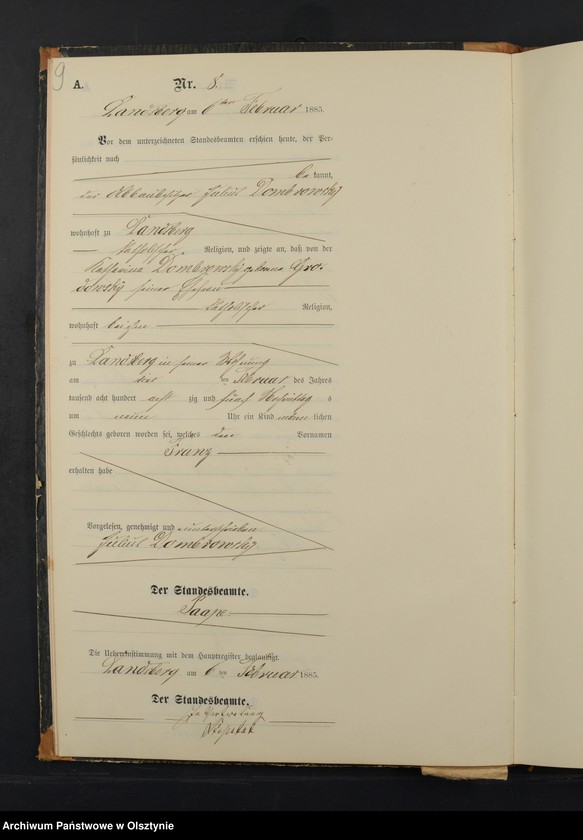 9
A. Nr. 8.
Landsberg am 6ten Februar 1885.
Vor dem unterzeichneten Standesbeamten erschien heute, der Per-
sönlichkeit nach
be kannt,
der Julius Dombrowsky
wohnhaft zu Landsberg
katholischer Religion, und zeigte an, daß von der
Katharina Dombrowsky geborene Gro-
dowsky seiner Ehefrau
katholischer Religion,
wohnhaft bei ihm
zu Landsberg in seiner Wohnung
am ten Februar des Jahres
tausend acht hundert acht zig und fünf
um neun Uhr ein Kind männ lichen
Geschlechts geboren worden sei, welches den Vornamen
Franz
erhalten habe
Vorgelesen, genehmigt und unterschrieben
Julius Dombrowsky
Der Standesbeamte.
Saape
Die Uebereinstimmung mit dem Hauptregister beglaubigt.
Landsberg am 6 ten Februar 1885.
Der Standesbeamte.
In Vertretung
Archiwum Państwowe w Olsztynie